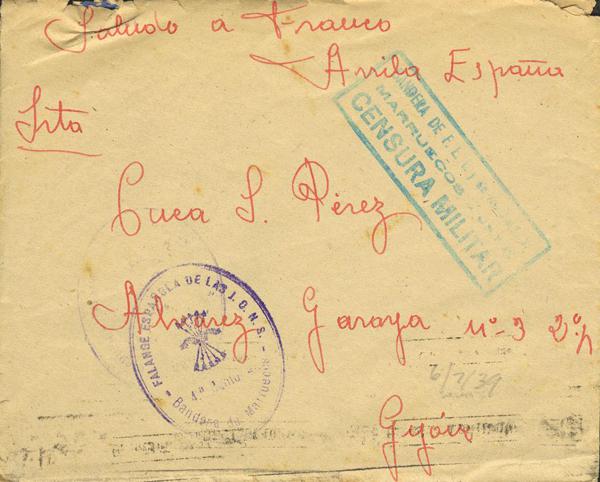 Saludo a Franco
Arriba España
Srta
Cuca S. Pérez
Alvarez Garaya nº-3 2º
Gijón
BANDERA DE F.E.T.
MARRUECOS
CENSURA MILITAR
FALANGE ESPAÑOLA DE LAS J.O.N.S.
Bandera de Marruecos
6/7/39